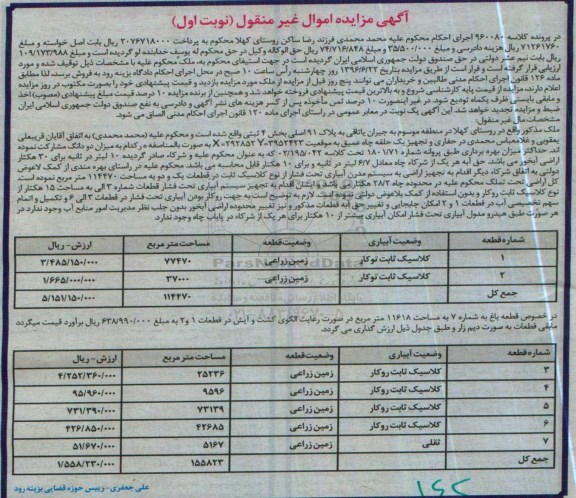 آگهی مزایده اموال غیر منقول (نوبت اول)
در پرونده کلاسه ۹۶۰۰۸۰ اجرای احکام محکوم علیه محمد محمدی فرزند رضا ساکن روستای کهلا محکوم به پرداخت ۲۰۷۶۷۱۸۰۰۰ ریال بابت اصل خواسته و مبلغ
۷۱۲۶۱۷۶۰ ریال هزینه دادرسی و مبلغ ۳۵۵۰۰/۰۰۰ و مبلغ ۷۴/۷۱۶/۸۴۸ ریال حق الوکاله وکیل در حق محکوم له یوسف خدابنده لو گردیده است و مبلغ ۱۰۹/۱۷۳/۹۸۸
ریال بابت نیم عشر دولتی در حق صندوق دولت جمهوری اسلامی ایران گردیده است در جهت استیفای محکوم به، ملک محکوم علیه با مشخصات ذیل توقیف شده و مورد
ارزیابی قرار گرفته است و قرار است از طریق مزایده بتاریخ ۱۳۹۶/۶/۲۲ روز چهارشنبه راس ساعت ۱۰ صبح در محل اجرای احکام دادگاه بزینه رود به فروش برسد، لذا مطابق
ماده ۱۲۶ قانون اجرای احکام مدنی طالبین و خریداران می توانند پنج روز قبل از مزایده از ملک مورد مزایده بازدید و قیمت پیشنهادی خود را بصورت مکتوب در روز مزایده
اعلام دارند، مزایده از قیمت پایه کارشناسی شروع و به بالاترین قیمت پیشنهادی فروخته خواهد شد و همچنین از برنده مزایده ۱۰ درصد قیمت مبلغ پیشنهادی (مصوب) اخذ
و مابقی بایستی ظرف یکماه تودیع شود، در غیر اینصورت ۱۰ درصد ثمن ماخوذه پس از کسر هزینه های نشر آگهی و دادرسی به نفع صندوق دولت جمهوری اسلامی ایران
ضبط و مزایده تجدید خواهد شد. این آگهی یک نوبت در معابر عمومی در راستای اجرای ماده ۱۲۰ قانون اجرای احکام مدنی الصاق می شود.
مشخصات مال غیر منقول:
ملک مذکور واقع در روستای کهلا در منطقه موسوم به جیران یاتاقی به پلاک ۹۱ اصلی بخش ۴ ثبتی واقع شده است و محکوم علیه (محمد محمدی) به اتفاق آقایان قربیعلی
یعقوبی و غلامعباس محمدی در حفاری و تجهیز یک حلقه چاه عمیق به موقعیت X=۲۹۲۸۵۲ Y=۳۹۵۲۴۲۳ به صورت بالمناصفه در کدام به میزان دو دانگ مشارکت نموده
اند. حداکثر میزان بهره برداری طبق پروانه شماره ۱۸۰/۱۷۱ تحت کلاسه ۰۲/۱۹۵/۰۴۲ که به عنوان محکوم علیه و شرکاء صادر گردیده ۱۰ لیتر در ثانیه برای ۳۰ هکتار
اراضی آبخور می باشد. حق آبه هر یک از شرکاء چاه معادل ۶/۷ لیتر در ثانیه و برای ۱۰ هکتار قابل محاسبه می باشد. محکوم علیه در راستای بهره مندی از کمک لاعوض
دولتی به اتفاق شرکاء دیگر اقدام به تجهیز اراضی به سیستم مدرن آبیاری تحت فشار از نوع کلاسیک ثابت در قطعات یک و دو به مساحت ۱۱۴۴۷۰ متر مربع نموده است
کل اراضی تحت تملک محکوم علیه در محدوده چاه ۲۸/۲ هکتار می باشد
شماره قطعه | وضعیت آبیاری | وضعیت قطعه | مساحت متر مربع | ارزش - ریال
۱ | کلاسیک ثابت توکار | زمین زراعی | ۷۷۴۷۰ | ۳/۴۸۵/۱۵۰/۰۰۰
۲ | کلاسیک ثابت توکار | زمین زراعی | ۳۷۰۰۰ | ۱/۶۶۵/۰۰۰/۰۰۰
جمع کل | ۱۱۴۴۷۰ | ۵/۱۵۱/۱۵۰/۰۰۰
در خصوص قطعه باغ به شماره ۷ به مساحت ۱۱۶۱۸ متر مربع در صورت رعایت الگوی کشت و آیش در قطعات ۱ و ۲ به مبلغ ۶۳۸/۹۹۰/۰۰۰ ریال برآورد قیمت میگردد
مابقی قطعات به صورت دیم زار و طبق جدول ذیل ارزش گذاری می گردد.
شماره قطعه | وضعیت آبیاری | وضعیت قطعه | مساحت متر مربع | ارزش - ریال
۳ | کلاسیک ثابت روکار | زمین زراعی | ۲۵۲۳۶ | ۴/۲۵۲/۳۶۰/۰۰۰
۴ | کلاسیک ثابت روکار | زمین زراعی | ۹۵۹۶ | ۹۵/۹۶۰/۰۰۰
۵ | کلاسیک ثابت روکار | زمین زراعی | ۷۳۱۳۹ | ۷۳۱/۳۹۰/۰۰۰
۶ | کلاسیک ثابت روکار | زمین زراعی | ۴۲۶۸۵ | ۴۲۶/۸۵۰/۰۰۰
۷ | ثقلی | زمین زراعی | ۵۱۶۷ | ۵۱/۶۷۰/۰۰۰
جمع کل | ۱۵۵۸۲۳ | ۱/۵۵۸/۲۳۰/۰۰۰
علی جعفری - رییس حوزه قضایی بزینه رود